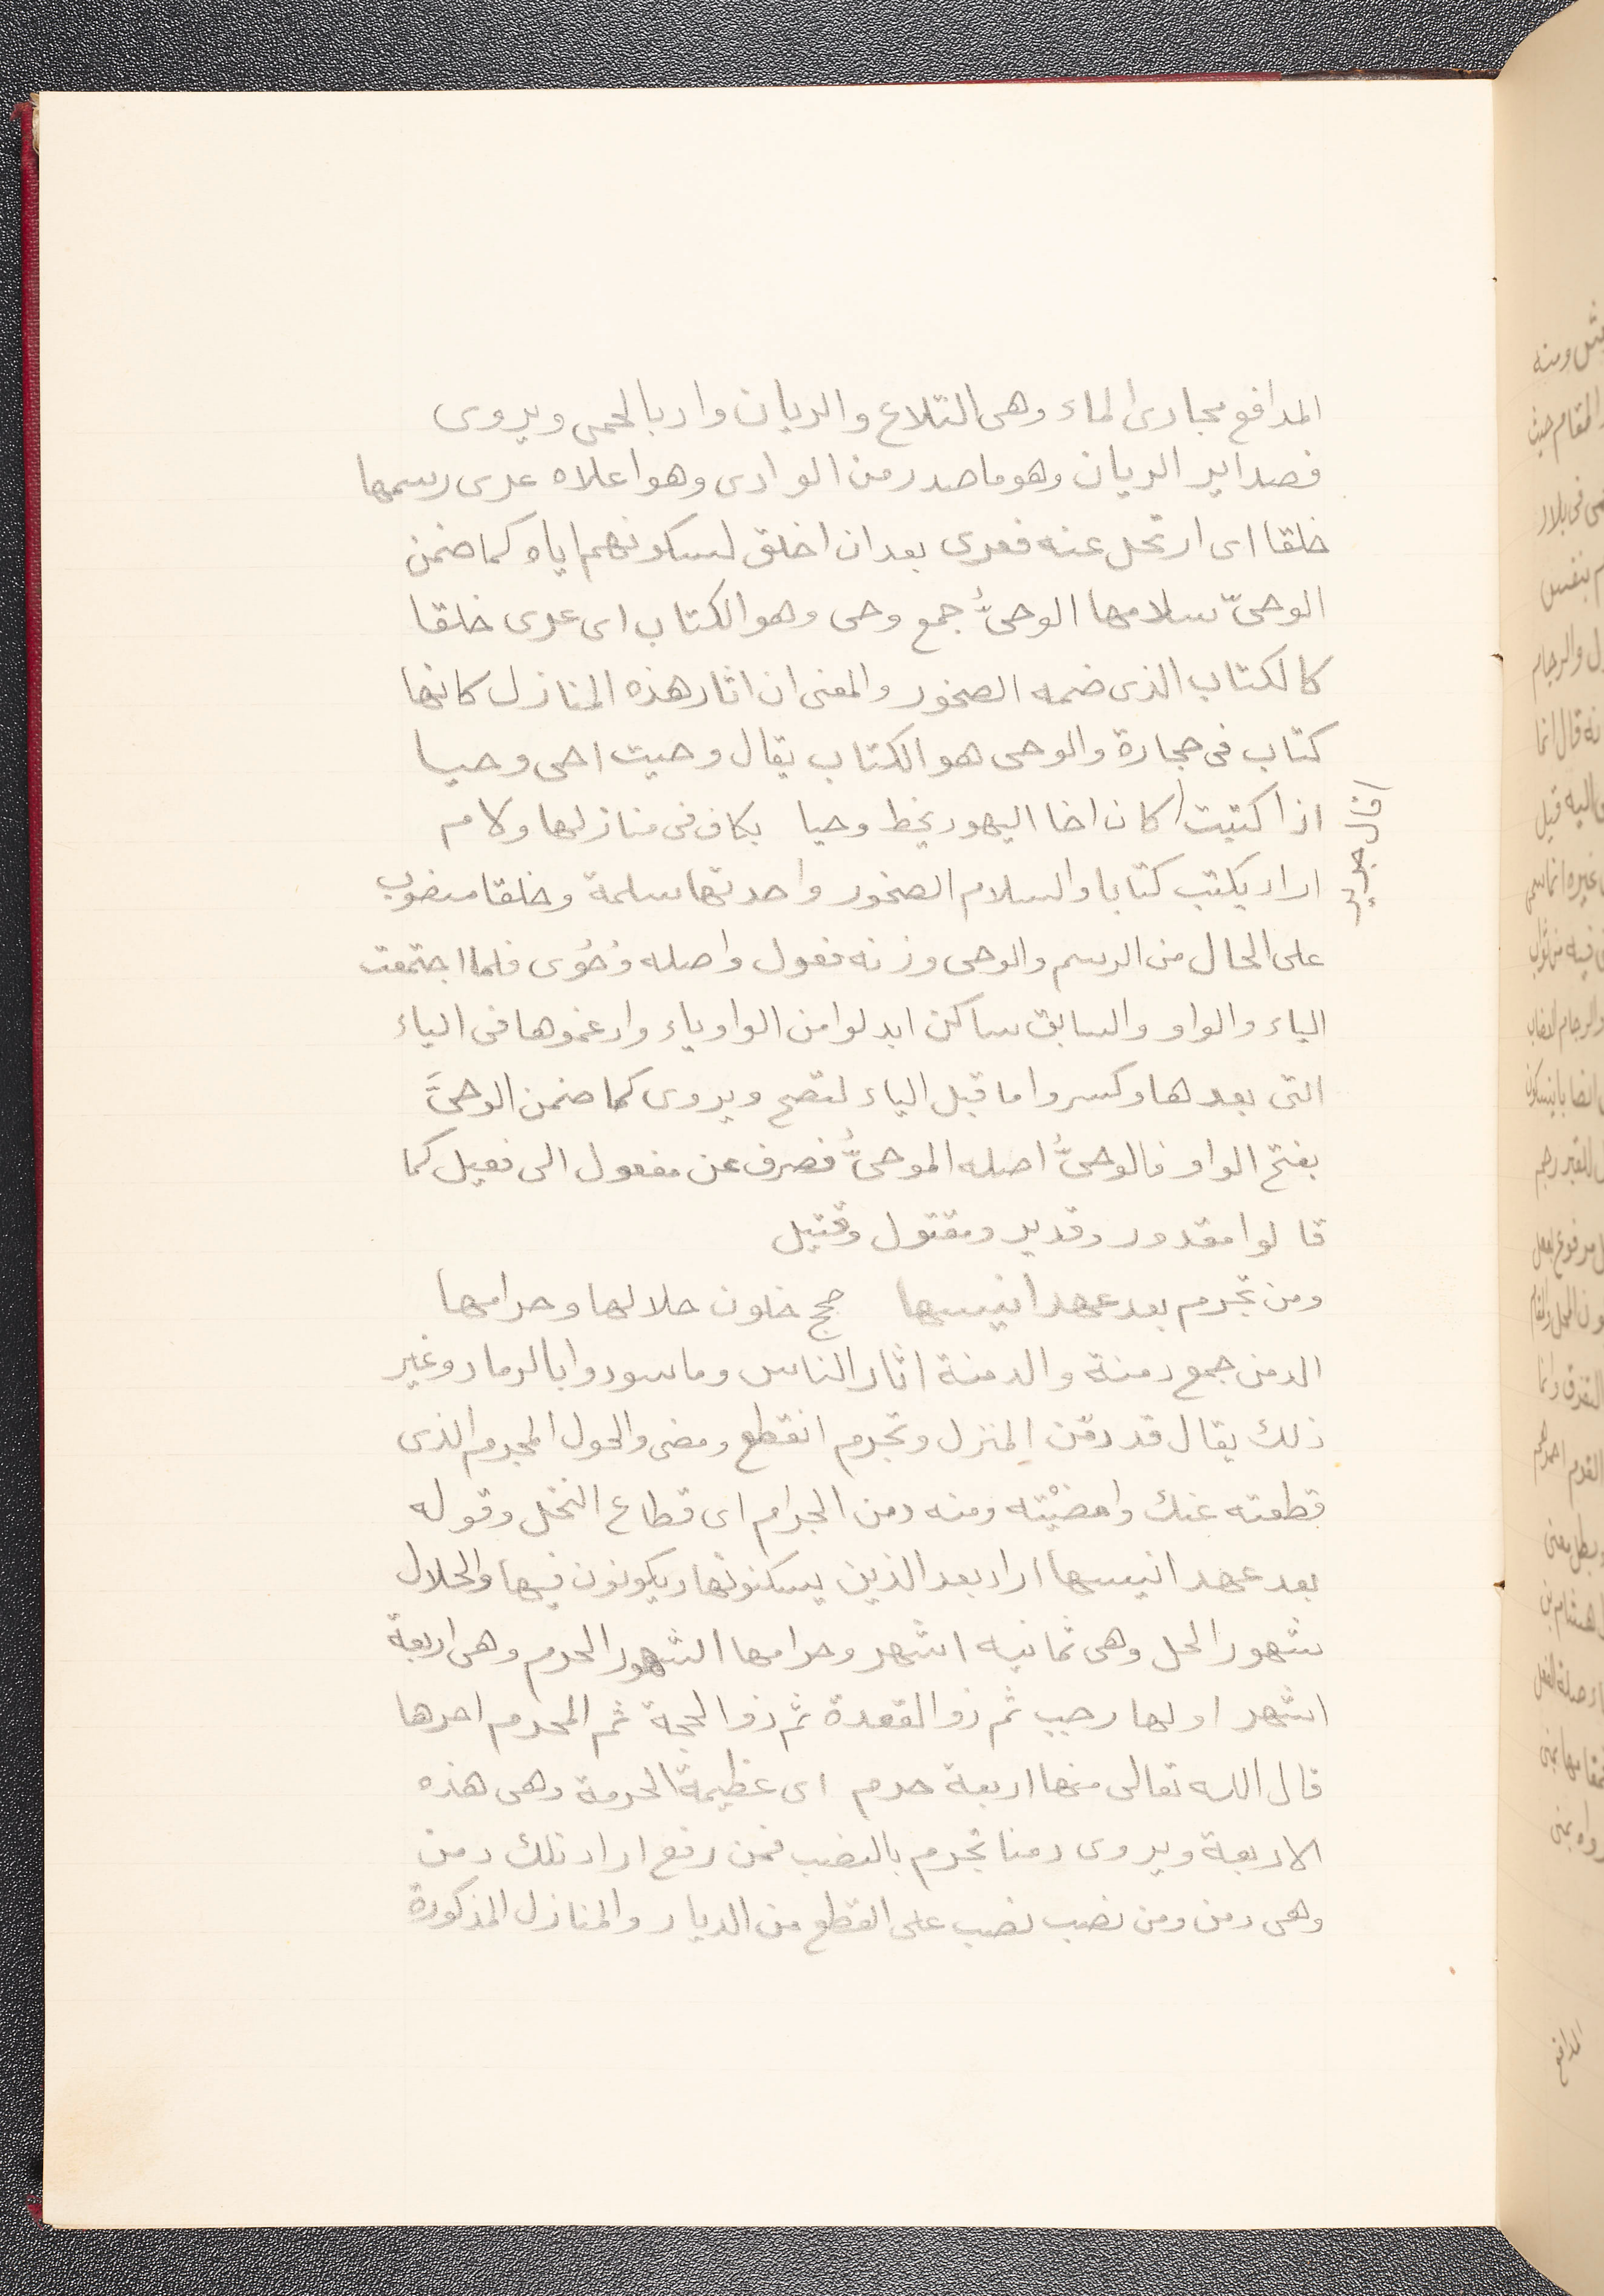 المدافع مجارى الماء وهى التلاع والريان واد بالحمى ويروى
فصداير الريان وهو ما صدر من الوادى وهو اعلاه عرى رسمها
خلقا اى ارتحل عنه فعرى بعد ان اخلق لسكونهم اياه كما ضمن
الوحىّ سلامها الوحىُّ جمع وحى وهو الكتاب اى عرى خلقا
كالكتاب الذى ضمه الصخور والمعنى ان اثار هذه المنازل كانها
كتاب فى حجارة والوحى هو الكتاب يقال وحيت احى وحيا
اذا كتبت كان اخا اليهود يخط وحيا بكاف فى منازلها ولام
قال جرير
اراد يكتب كتابا والسلام الصخور واحدتها سلمة وخلقا منصوب
على الحال من الرسم والوحى وزنه فعول واصله وُحُوى فلما اجتمعت
الياء والواو والسابق ساكن ابدلوا من الواو ياء وادغموها فى الياء
التى بعدها وكسروا ما قبل الياء لتصح ويروى كما ضمن الوحىَّ
بفتح الواو فالوحىُّ اصله الموحىُّ فصرف عن مفعول الى فعيل كما
قالوا مقدور وقدير ومقتول وقتيل
ومن تجرم بعد عهد انيسها حجج خلون حلالها وحرامها
الدمن جمع دمنة والدمنة اثار الناس وما سودوا بالرماد وغير
ذلك يقال قد دمّن المنزل وتجرم انقطع ومضى والحول المجرم الذى
قطعته عنك وامضيْته ومنه دمن الجرام اى قطاع النخل وقوله
بعد عهد انيسها اراد بعد الذين يسكنونها ويكونون فيها والحلال
شهور الحل وهى ثمانيه اشهر وحرامها الشهور الحرم وهى اربعة
اشهر اولها رجب ثم ذو القعدة ثم ذو الحجة ثم المحرم احرها
قال الله تعالى منها اربعة حرم اى عظيمة الحرمة وهى هذه
الاربعة ويروى دمنا تجرم بالنصب فمن رفع اراد تلك دمن
وهى دمن ومن نصب نصب على القطع من الديار والمنازل المذكورة